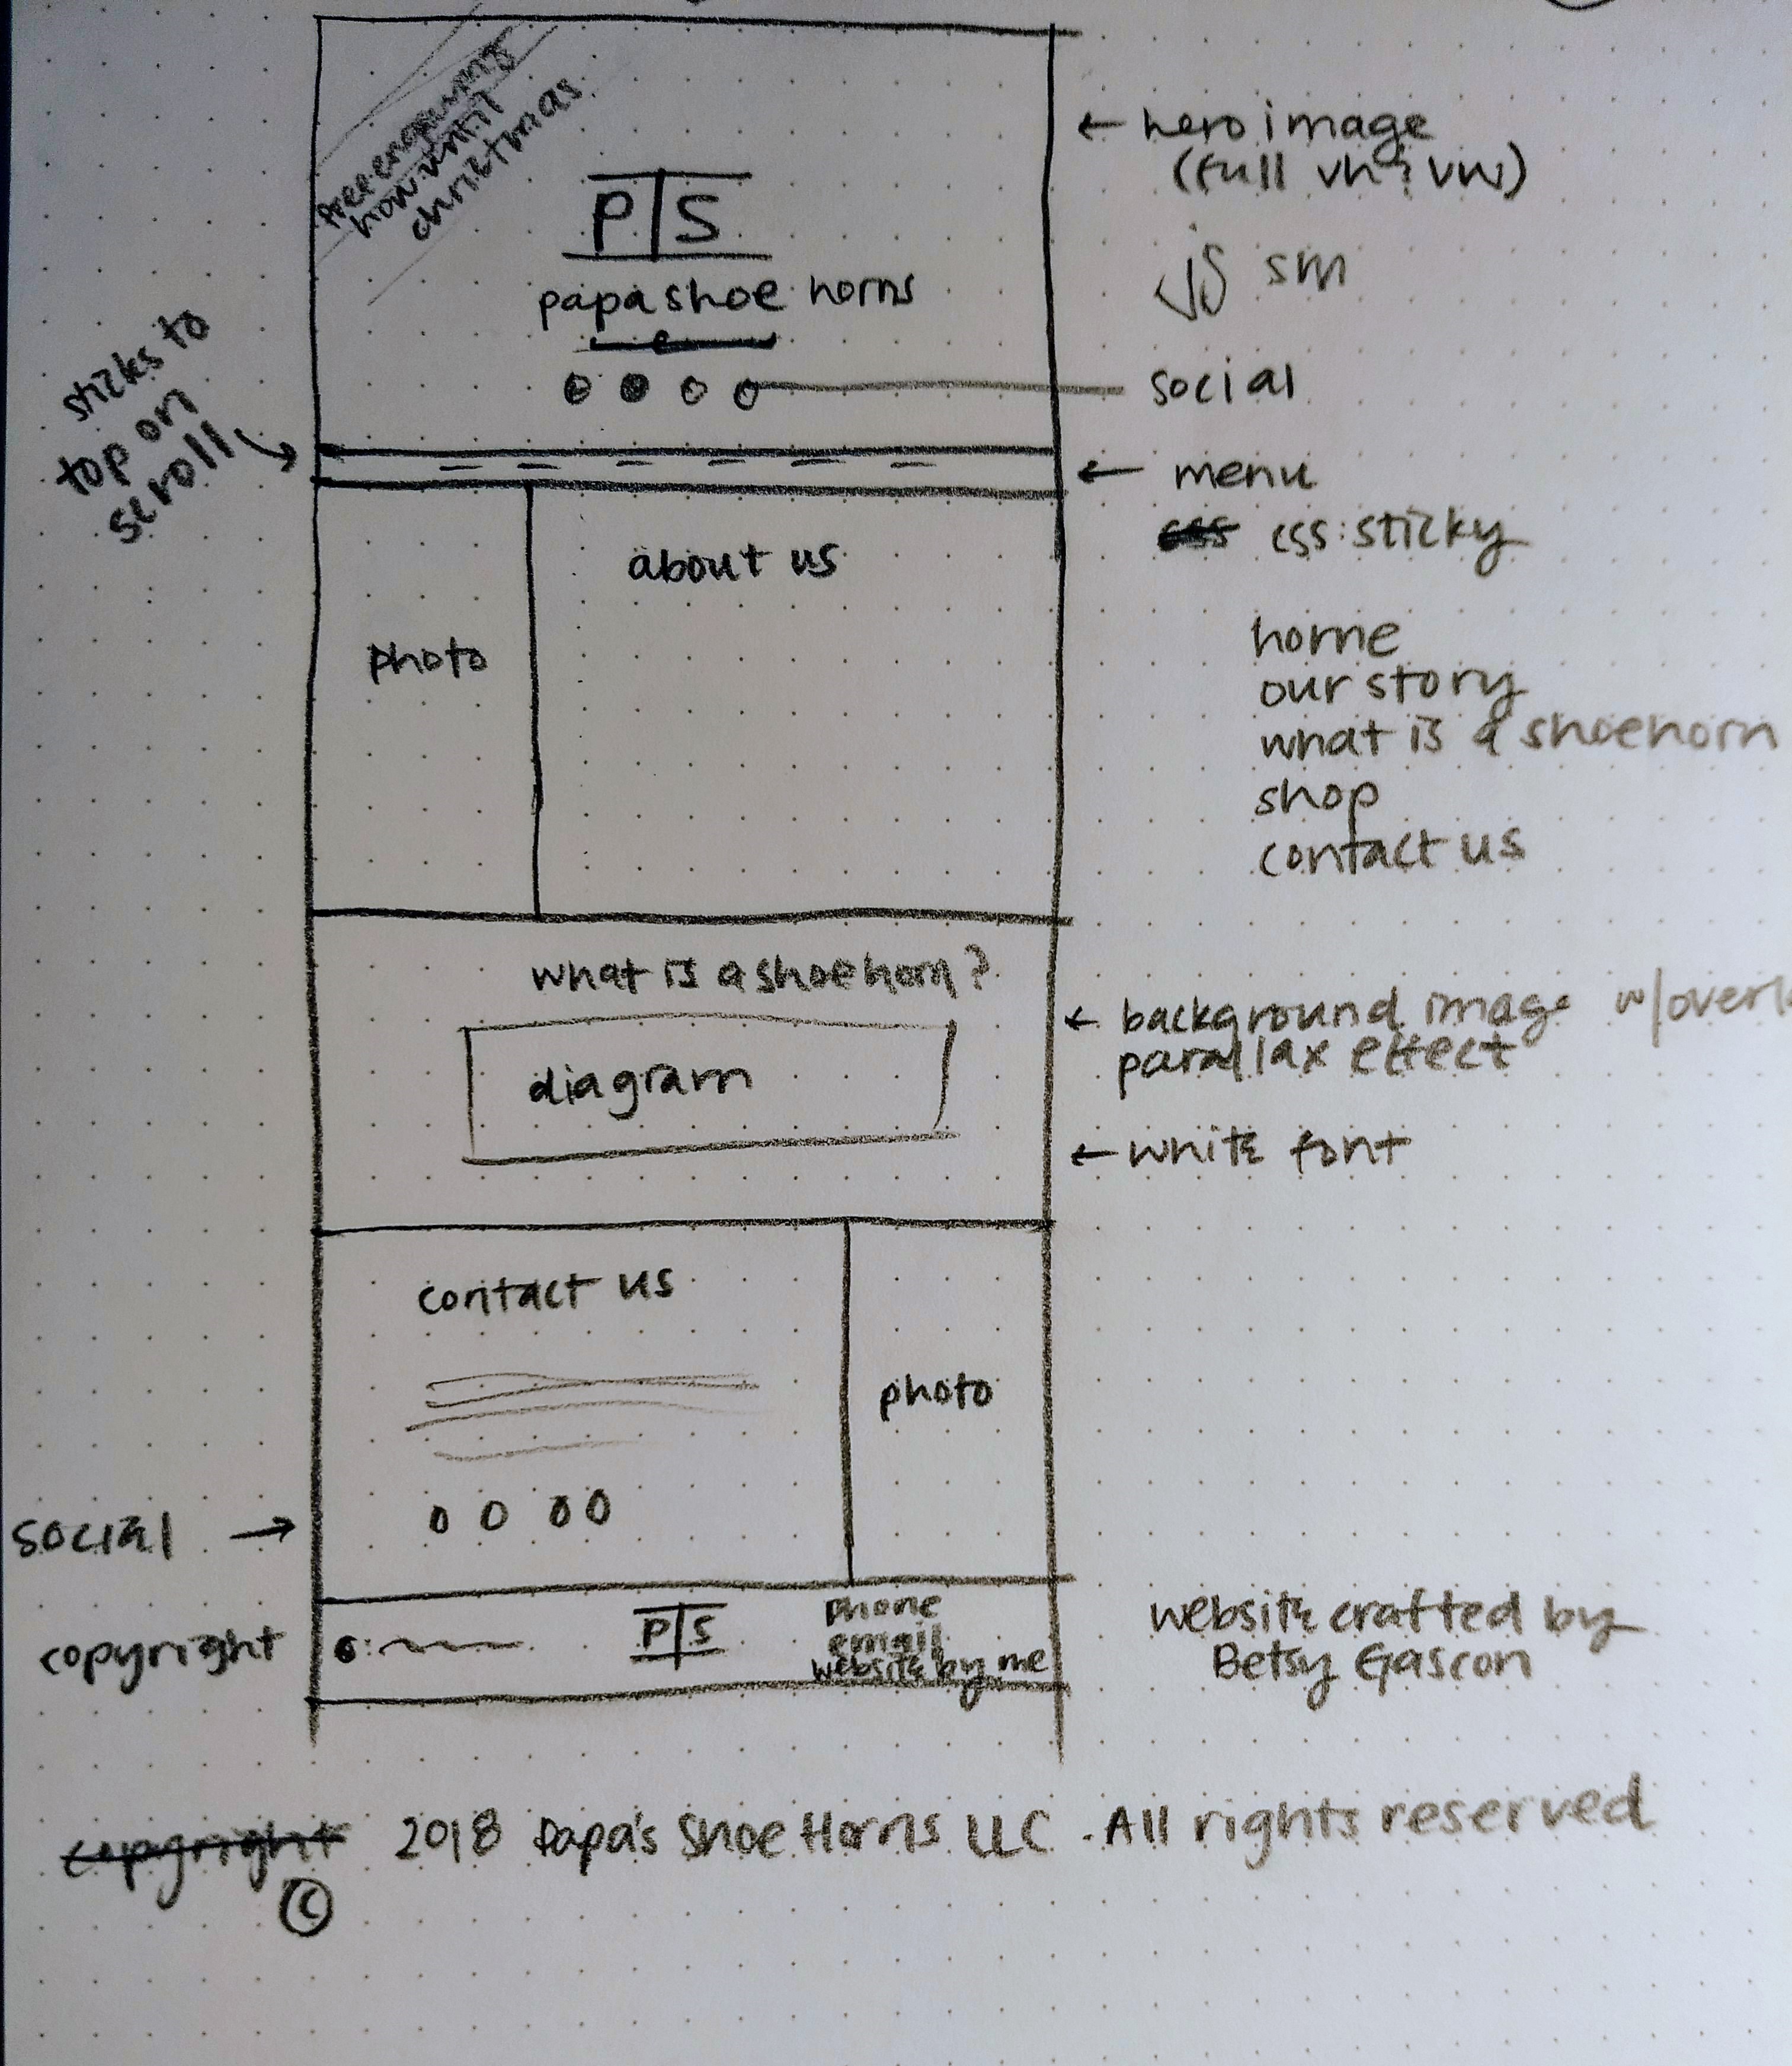 free engraving
now until
christmas
← hero image
(full vh & vw)
P|S
papa shoe horns
JS sm
social
sticks to
top on
scroll
← menu
css css: sticky
about us
photo
home
our story
what is a shoehorn
shop
contact us
what is a shoe horn?
← background image w/overl
parallax effect
diagram
← white font
contact us
photo
social →
copyright
P|S
phone
email
website by me
website crafted by
Betsy Gascon
copyright 2018 Papa's Shoe Horns LLC. All rights reserved
©